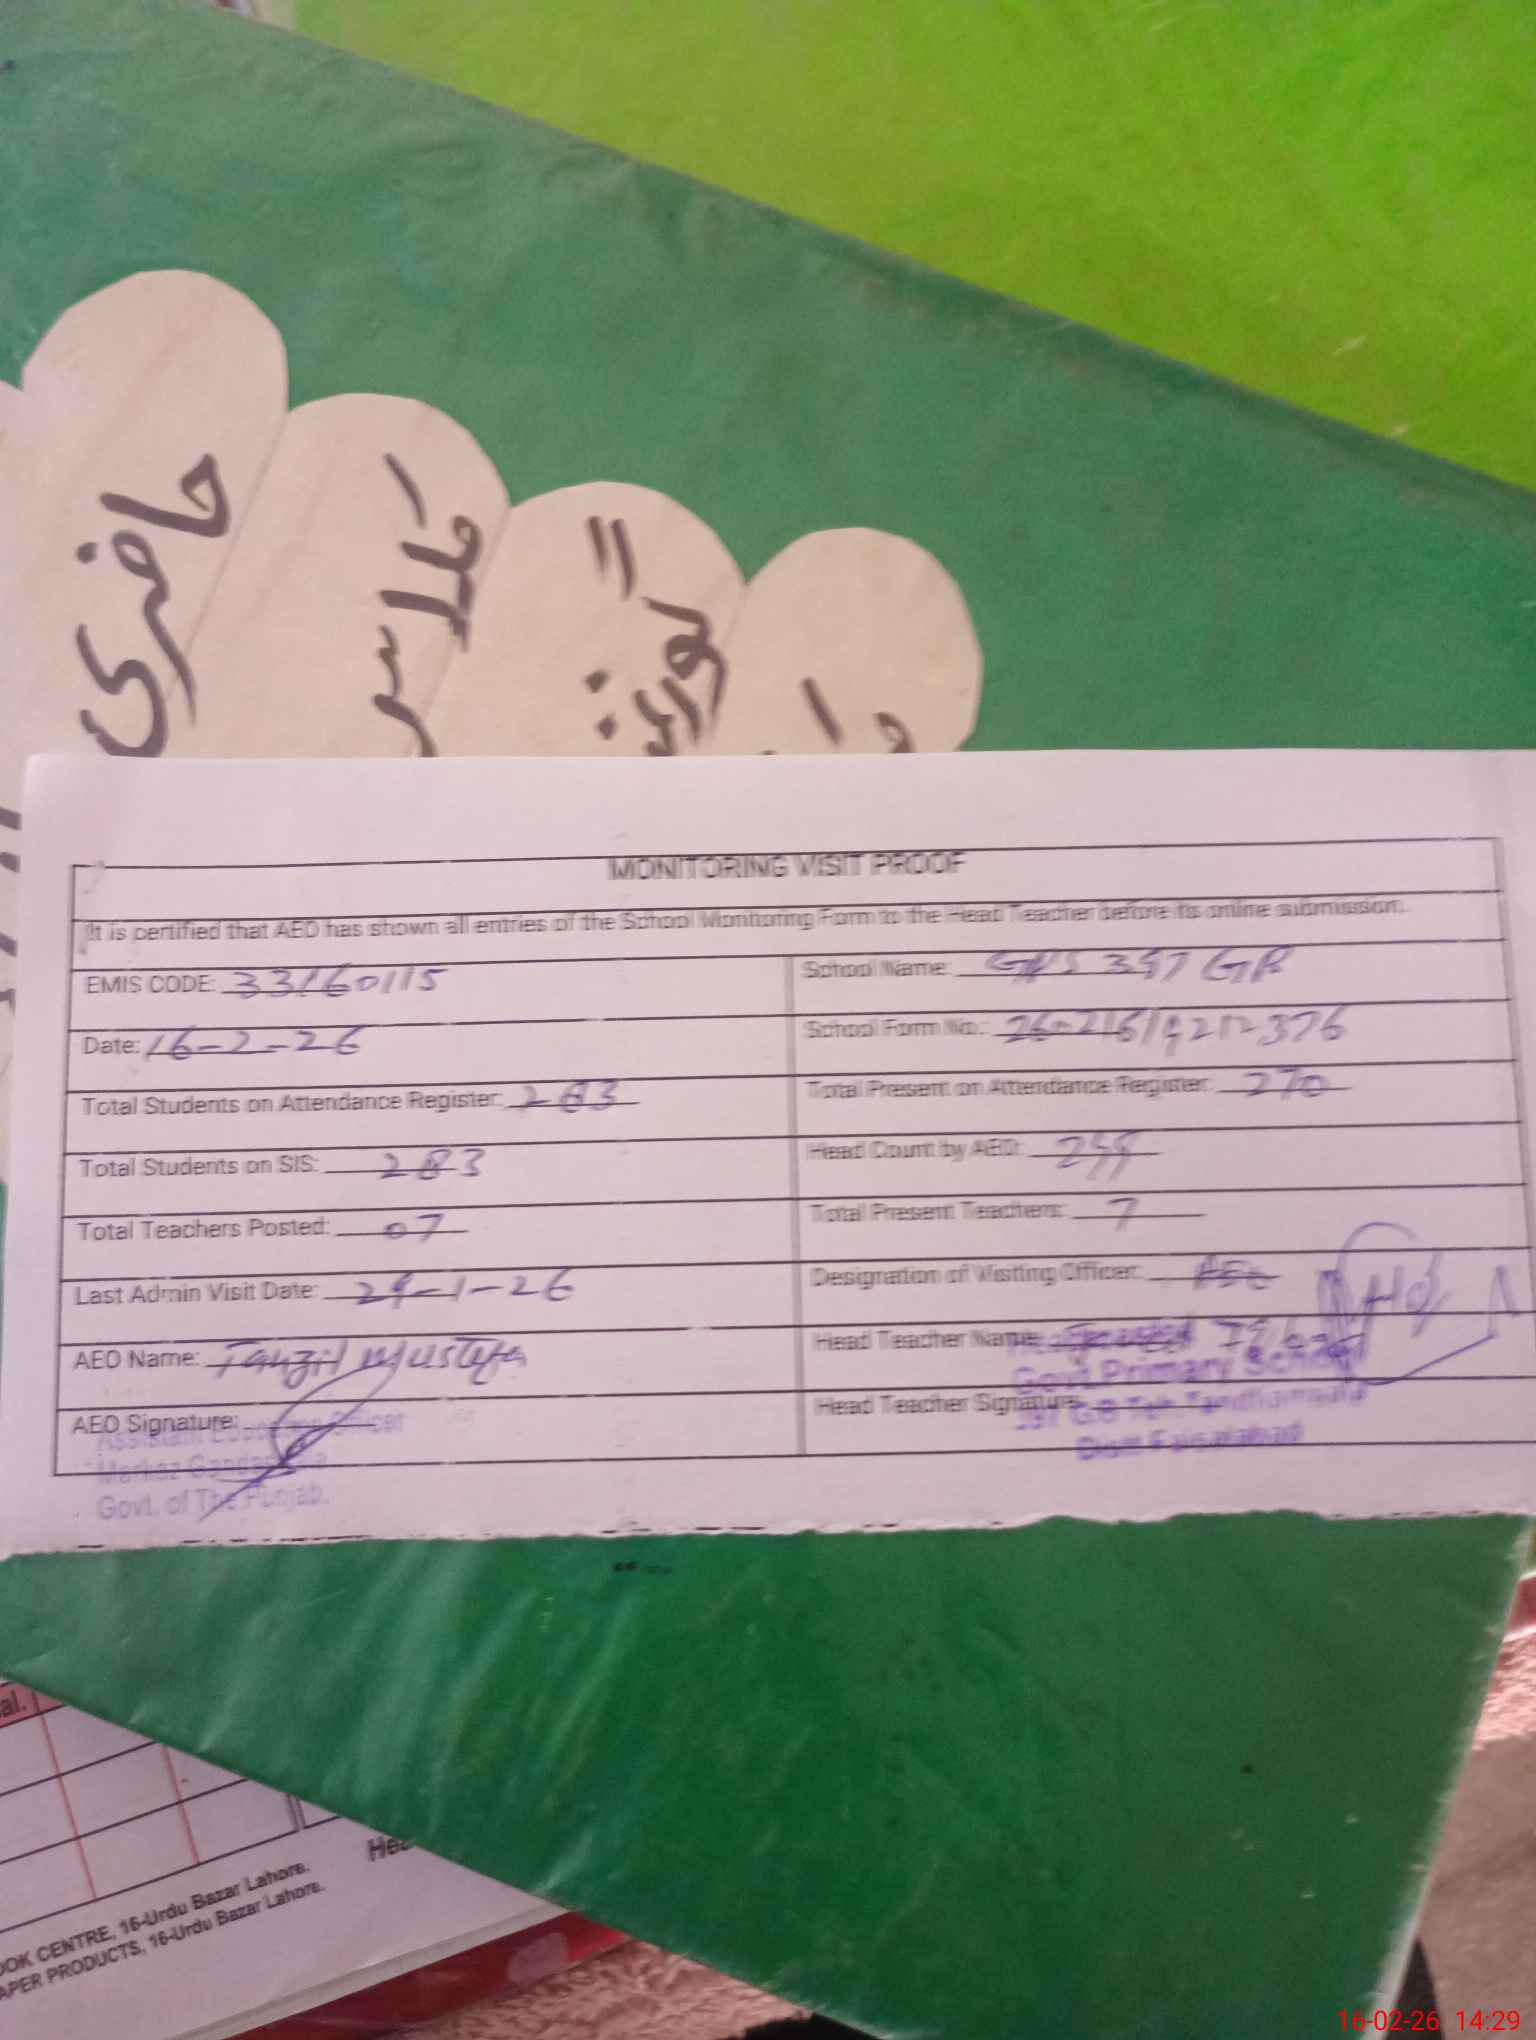 حاضری
MONITORING VISIT PROOF
It is certified that AEO has shown all entries of the School Monitoring Form to the Head Teacher before its online submission.
EMIS CODE: 33160115
School Name: GPS 397 GB
Date: 16-2-26
School Form No.:
Total Students on Attendance Register: 283
Total Present on Attendance Register: 270
Total Students on SIS: 283
Head Count by AEO:
Total Teachers Posted: 07
Total Present Teachers: 7
Last Admin Visit Date: 29-1-26
Designation of Visiting Officer: AEO
AEO Name: Tanzil Mustafa
Head Teacher Name:
Govt. Primary School
AEO Signature:
Head Teacher Signature
Assistant Education Officer
397 G.B Teh. Tandlianwala
Distt Faisalabad
Markaz
Govt. of The Punjab.
al.
Hea
OOK CENTRE, 16-Urdu Bazar Lahore.
APER PRODUCTS, 16-Urdu Bazar Lahore.
16-02-26 14:29